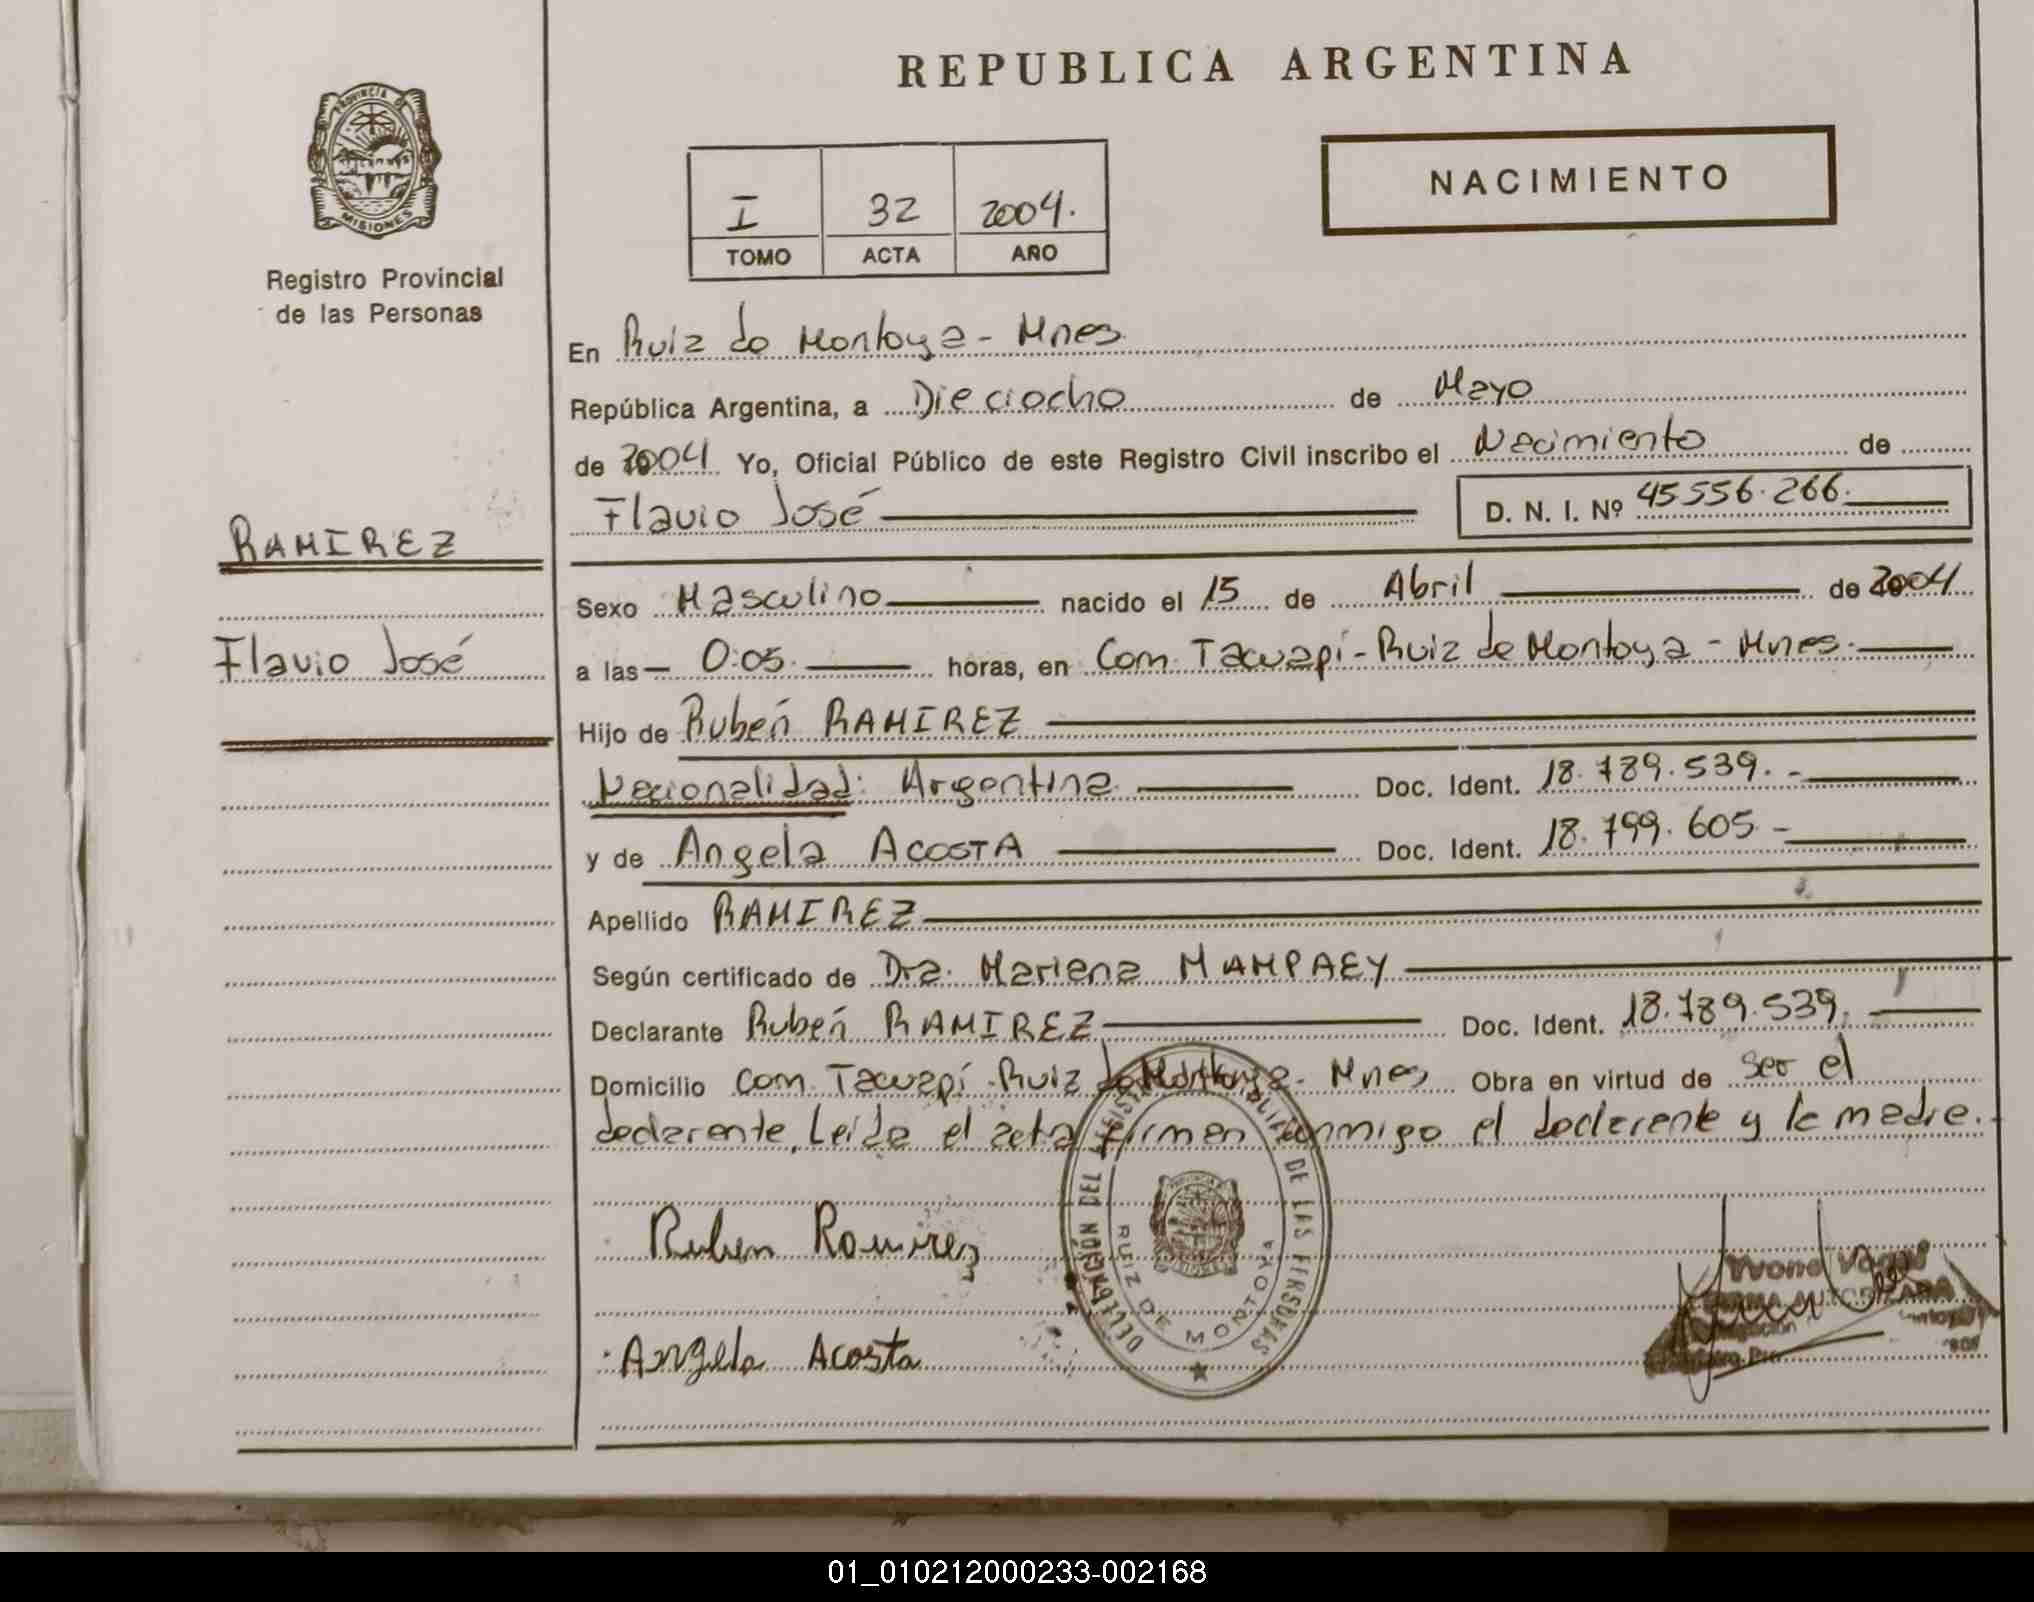 REPUBLICA ARGENTINA
PROVINCIA DE
MISIONES
Registro Provincial
de las Personas
NACIMIENTO
I 32 2004.
TOMO ACTA AÑO
En Ruiz de Montoya - Mnes.
República Argentina, a Dieciocho de Mayo
de 2004 Yo, Oficial Público de este Registro Civil inscribo el Nacimiento de
Flavio José D. N. I. Nº 45556.266.
RAMIREZ
Sexo Masculino nacido el 15 de Abril de 2004
Flavio José
a las 0:05. horas, en Com. Tacuapí - Ruiz de Montoya - Mnes.
Hijo de Rubén RAMIREZ
Nacionalidad: Argentina Doc. Ident. 18.789.539.-
y de Angela ACOSTA Doc. Ident. 18.799.605-
Apellido RAMIREZ
Según certificado de Dra. Mariena MAMPAEY
Declarante Rubén RAMIREZ Doc. Ident. 18.789.539.
Domicilio Com. Tacuapí - Ruiz de Montoya - Mnes Obra en virtud de ser el
declarante, Leída el acta firman conmigo el declarante y la madre.
DELEGACIÓN DEL REGISTRO DE LAS PERSONAS
RUIZ DE MONTOYA
Ruben Ramirez
FIRMA AUTORIZADA
Angela Acosta
01_010212000233-002168